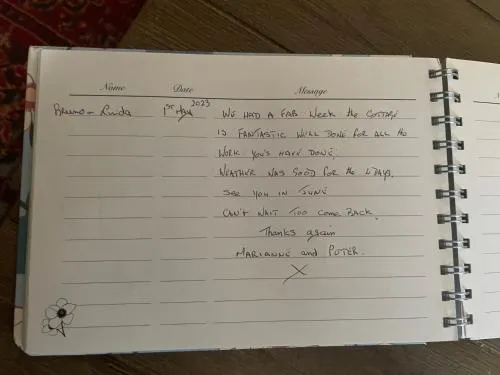 Name Date Message
Bruno + Linda 1st May 2023 WE HAD A FAB WEEK the COTTAGE
IS FANTASTIC WELL DONE FOR ALL the
WORK YOU'S HAVE DONE,
WEATHER WAS GOOD FOR the 4 DAYS.
SEE YOU IN JUNE
CAN'T WAIT TOO COME BACK.
Thanks again
MARIANNE and PETER.
X